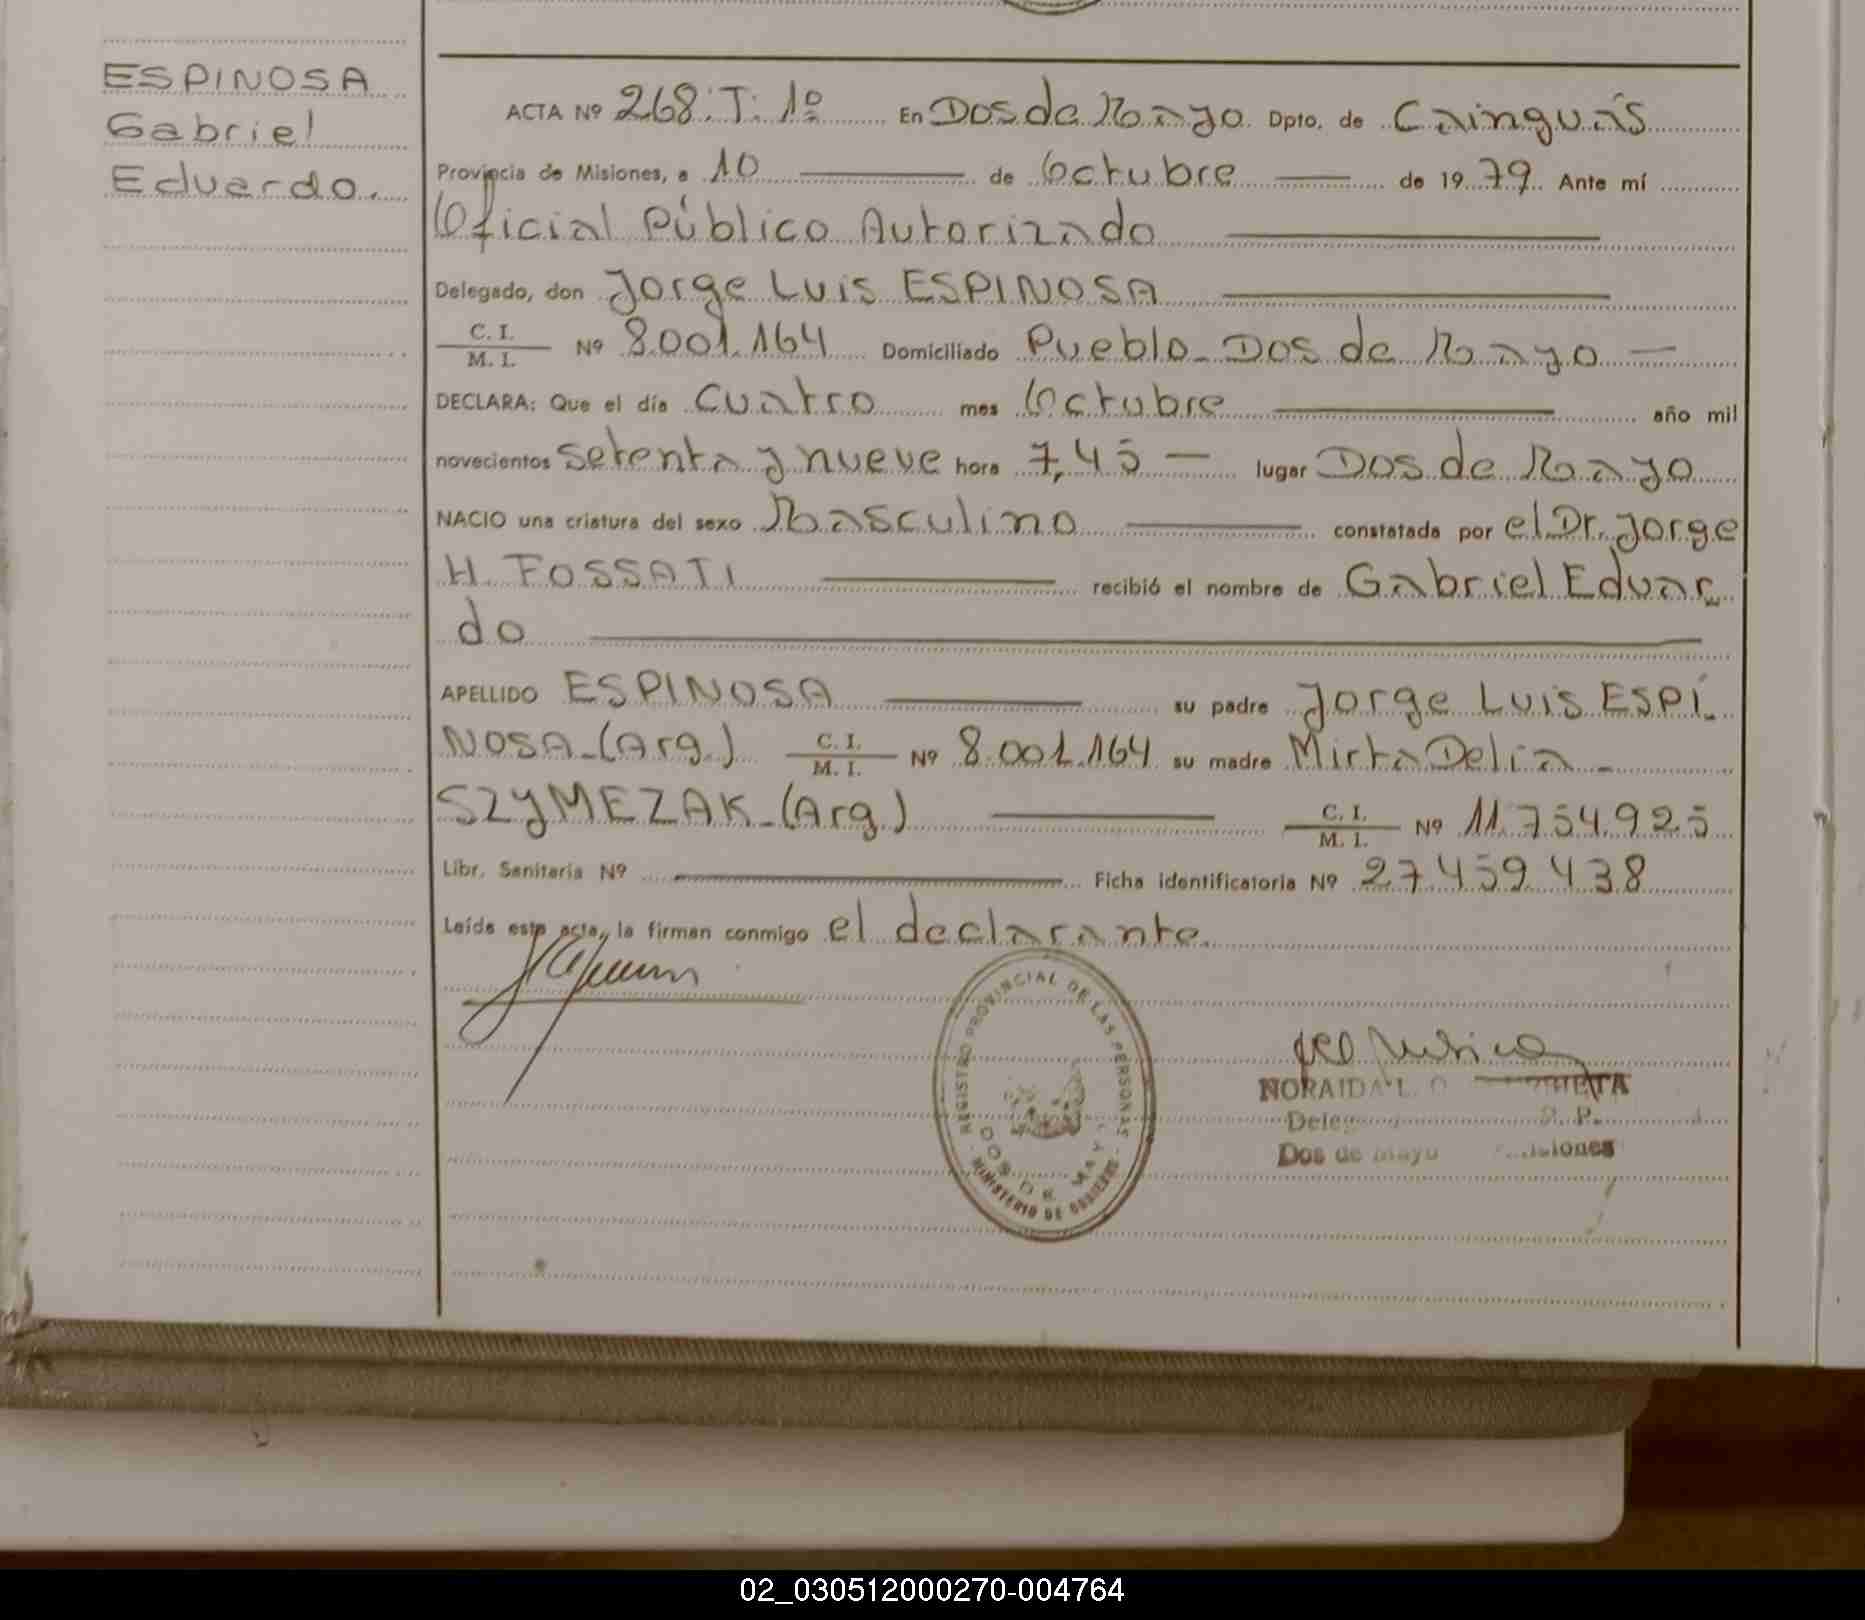 ESPINOSA
Gabriel
Eduardo.
ACTA Nº 268. T. 1º En Dos de Mayo Dpto. de Cainguás
Provincia de Misiones, a 10 de Octubre de 1979. Ante mí
Oficial Público Autorizado
Delegado, don Jorge Luis ESPINOSA
C. I.
M. I. Nº 8.001.164 Domiciliado Pueblo Dos de Mayo —
DECLARA: Que el día cuatro mes Octubre año mil
novecientos setenta y nueve hora 7,45 — lugar Dos de Mayo
NACIO una criatura del sexo Masculino constatada por el Dr. Jorge
H. FOSSATI recibió el nombre de Gabriel Eduar
do
APELLIDO ESPINOSA su padre Jorge Luis ESPI
NOSA-(Arg.) C. I. / M. I. Nº 8.001.164 su madre Mirta Delia -
SZYMEZAK-(Arg.) C. I. / M. I. Nº 11.754.925
Libr. Sanitaria Nº Ficha identificatoria Nº 27 459 438
Leída esta acta, la firman conmigo el declarante.
REGISTRO PROVINCIAL DE LAS PERSONAS
DOS DE MAYO
MINISTERIO DE GOBIERNO
NORAIDA L.
Dos de Mayo Misiones
02_030512000270-004764